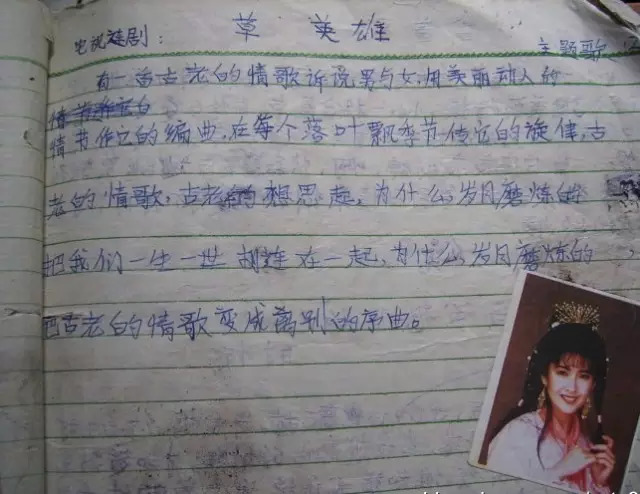 电视连剧： 草 英雄 主题歌
有一首古老的情歌诉说男与女,用美丽动人的
情节
情节作它的编曲,在每个落叶飘季节传它的旋律,古
老的情歌,古老的想思起,为什么岁月磨炼的
把我们一生一世胡连在一起,为什么岁月磨炼的
把古老的情歌变成离别的序曲。